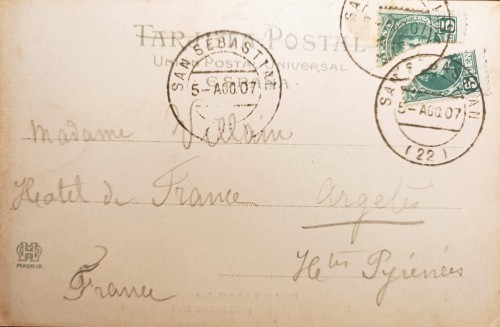 TARJETA POSTAL
UNIÓN POSTAL UNIVERSAL
ESPAÑA
SAN SEBASTIAN
5-AGO.07
SAN SEBASTIAN
5-AGO.07
(22)
Madame Villain
Hotel de France
Argelès
Htes Pyrénées
France
MADRID